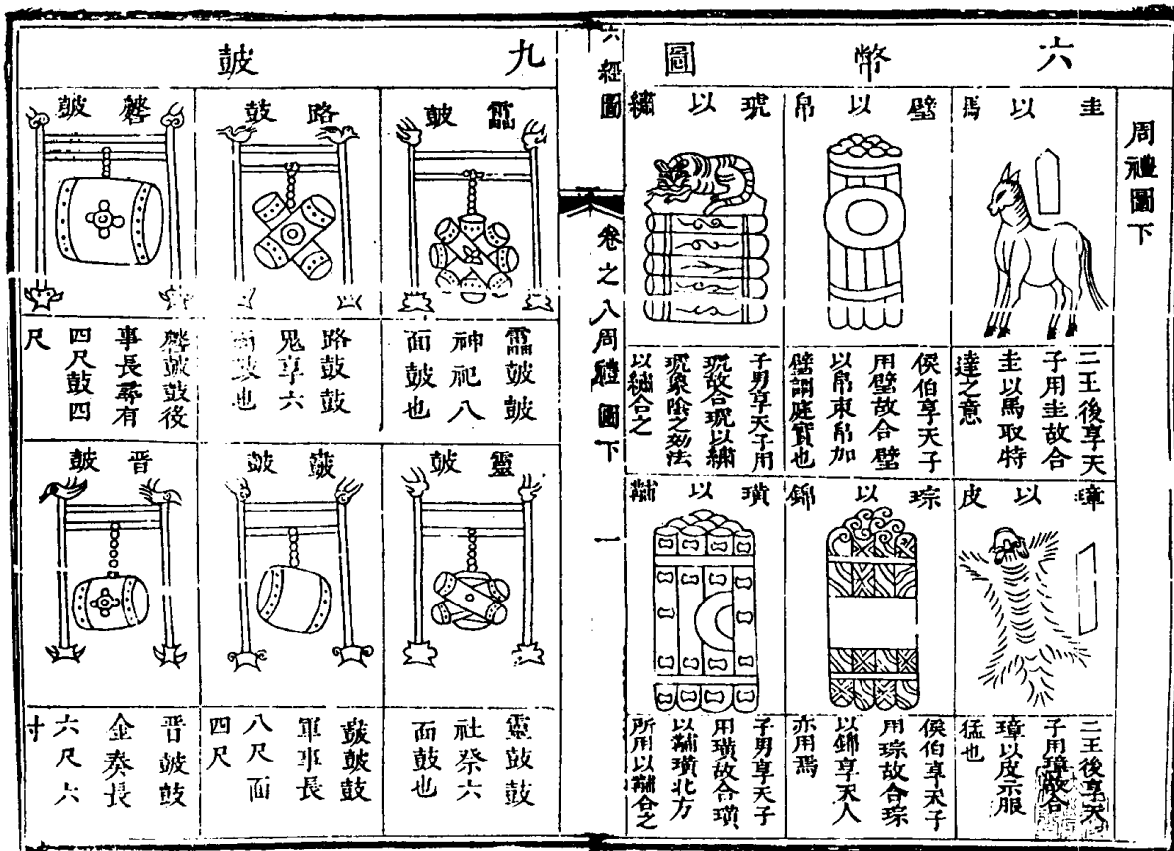 周禮圖下
六幣圖
圭以馬
二王後享天
子用圭故合
圭以馬取特
達之意
璧以帛
侯伯享天子
用璧故合璧
以帛束帛加
璧謂庭實也
琥以繡
子男享天子用
琥故合琥以繡
琥象陰之
以繡合之
璋以皮
二王後享天
子用璋故合
璋以皮示服
猛也
琮以錦
侯伯享天子
用琮故合琮
以錦享天人
亦用焉
璜以黼
子男享天子
用璜故合璜
以黼璜北方
所用以黼合之
六經圖
卷之八周禮圖下
一
九鼓
靁鼓
靁鼓鼓
神祀八
面鼓也
路鼓
路鼓鼓
鬼享六
面鼓也
鼛鼓
鼛鼓鼓後
事長尋有
四尺鼓四
尺
靈鼓
靈鼓鼓
社祭六
面鼓也
鼖鼓
鼖鼓鼓
軍事長
八尺面
四尺
晉鼓
晉鼓鼓
金奏長
六尺六
寸